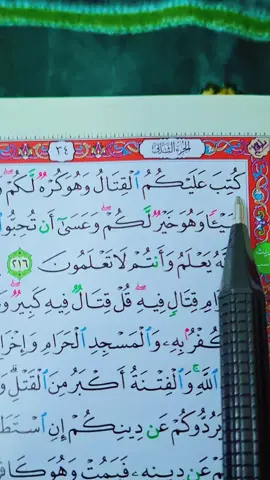 الجزء الثاني
٣٤
كُتِبَ عَلَيْكُمُ ٱلْقِتَالُ وَهُوَ كُرْهٌ لَّكُمْ
وَهُوَ خَيْرٌ لَّكُمْ وَعَسَىٰٓ أَن تُحِبُّوا۟
يَعْلَمُ وَأَنتُمْ لَا تَعْلَمُونَ ٢١٦
قِتَالٍ فِيهِ قُلْ قِتَالٌ فِيهِ كَبِيرٌ
وَكُفْرٌۢ بِهِۦ وَٱلْمَسْجِدِ ٱلْحَرَامِ
ٱللَّهِ وَٱلْفِتْنَةُ أَكْبَرُ مِنَ ٱلْقَتْلِ
يَرُدُّوكُمْ عَن دِينِكُمْ إِنِ
عَن دِينِهِۦ فَيَمُتْ وَهُوَ